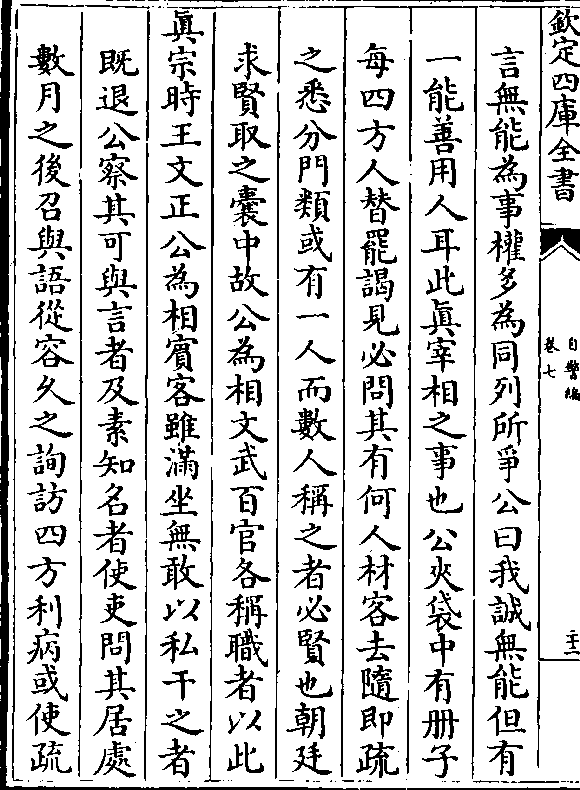 欽定四庫全書
自警編
卷七
二十二
言無能為事權多為同列所爭公曰我誠無能但有
一能善用人耳此眞宰相之事也公夾袋中有册子
每四方人替罷謁見必問其有何人材客去隨即疏
之悉分門類或有一人而數人稱之者必賢也朝廷
求賢取之囊中故公為相文武百官各稱職者以此
眞宗時王文正公為相賓客雖滿坐無敢以私干之者
既退公察其可與言者及素知名者使吏問其居處
數月之後召與語從容久之詢訪四方利病或使疏